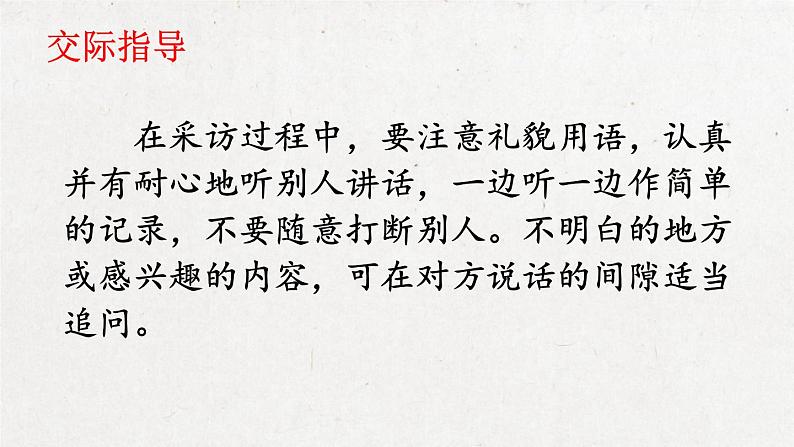 交际指导
在采访过程中，要注意礼貌用语，认真
并有耐心地听别人讲话，一边听一边作简单
的记录，不要随意打断别人。不明白的地方
或感兴趣的内容，可在对方说话的间隙适当
追问。